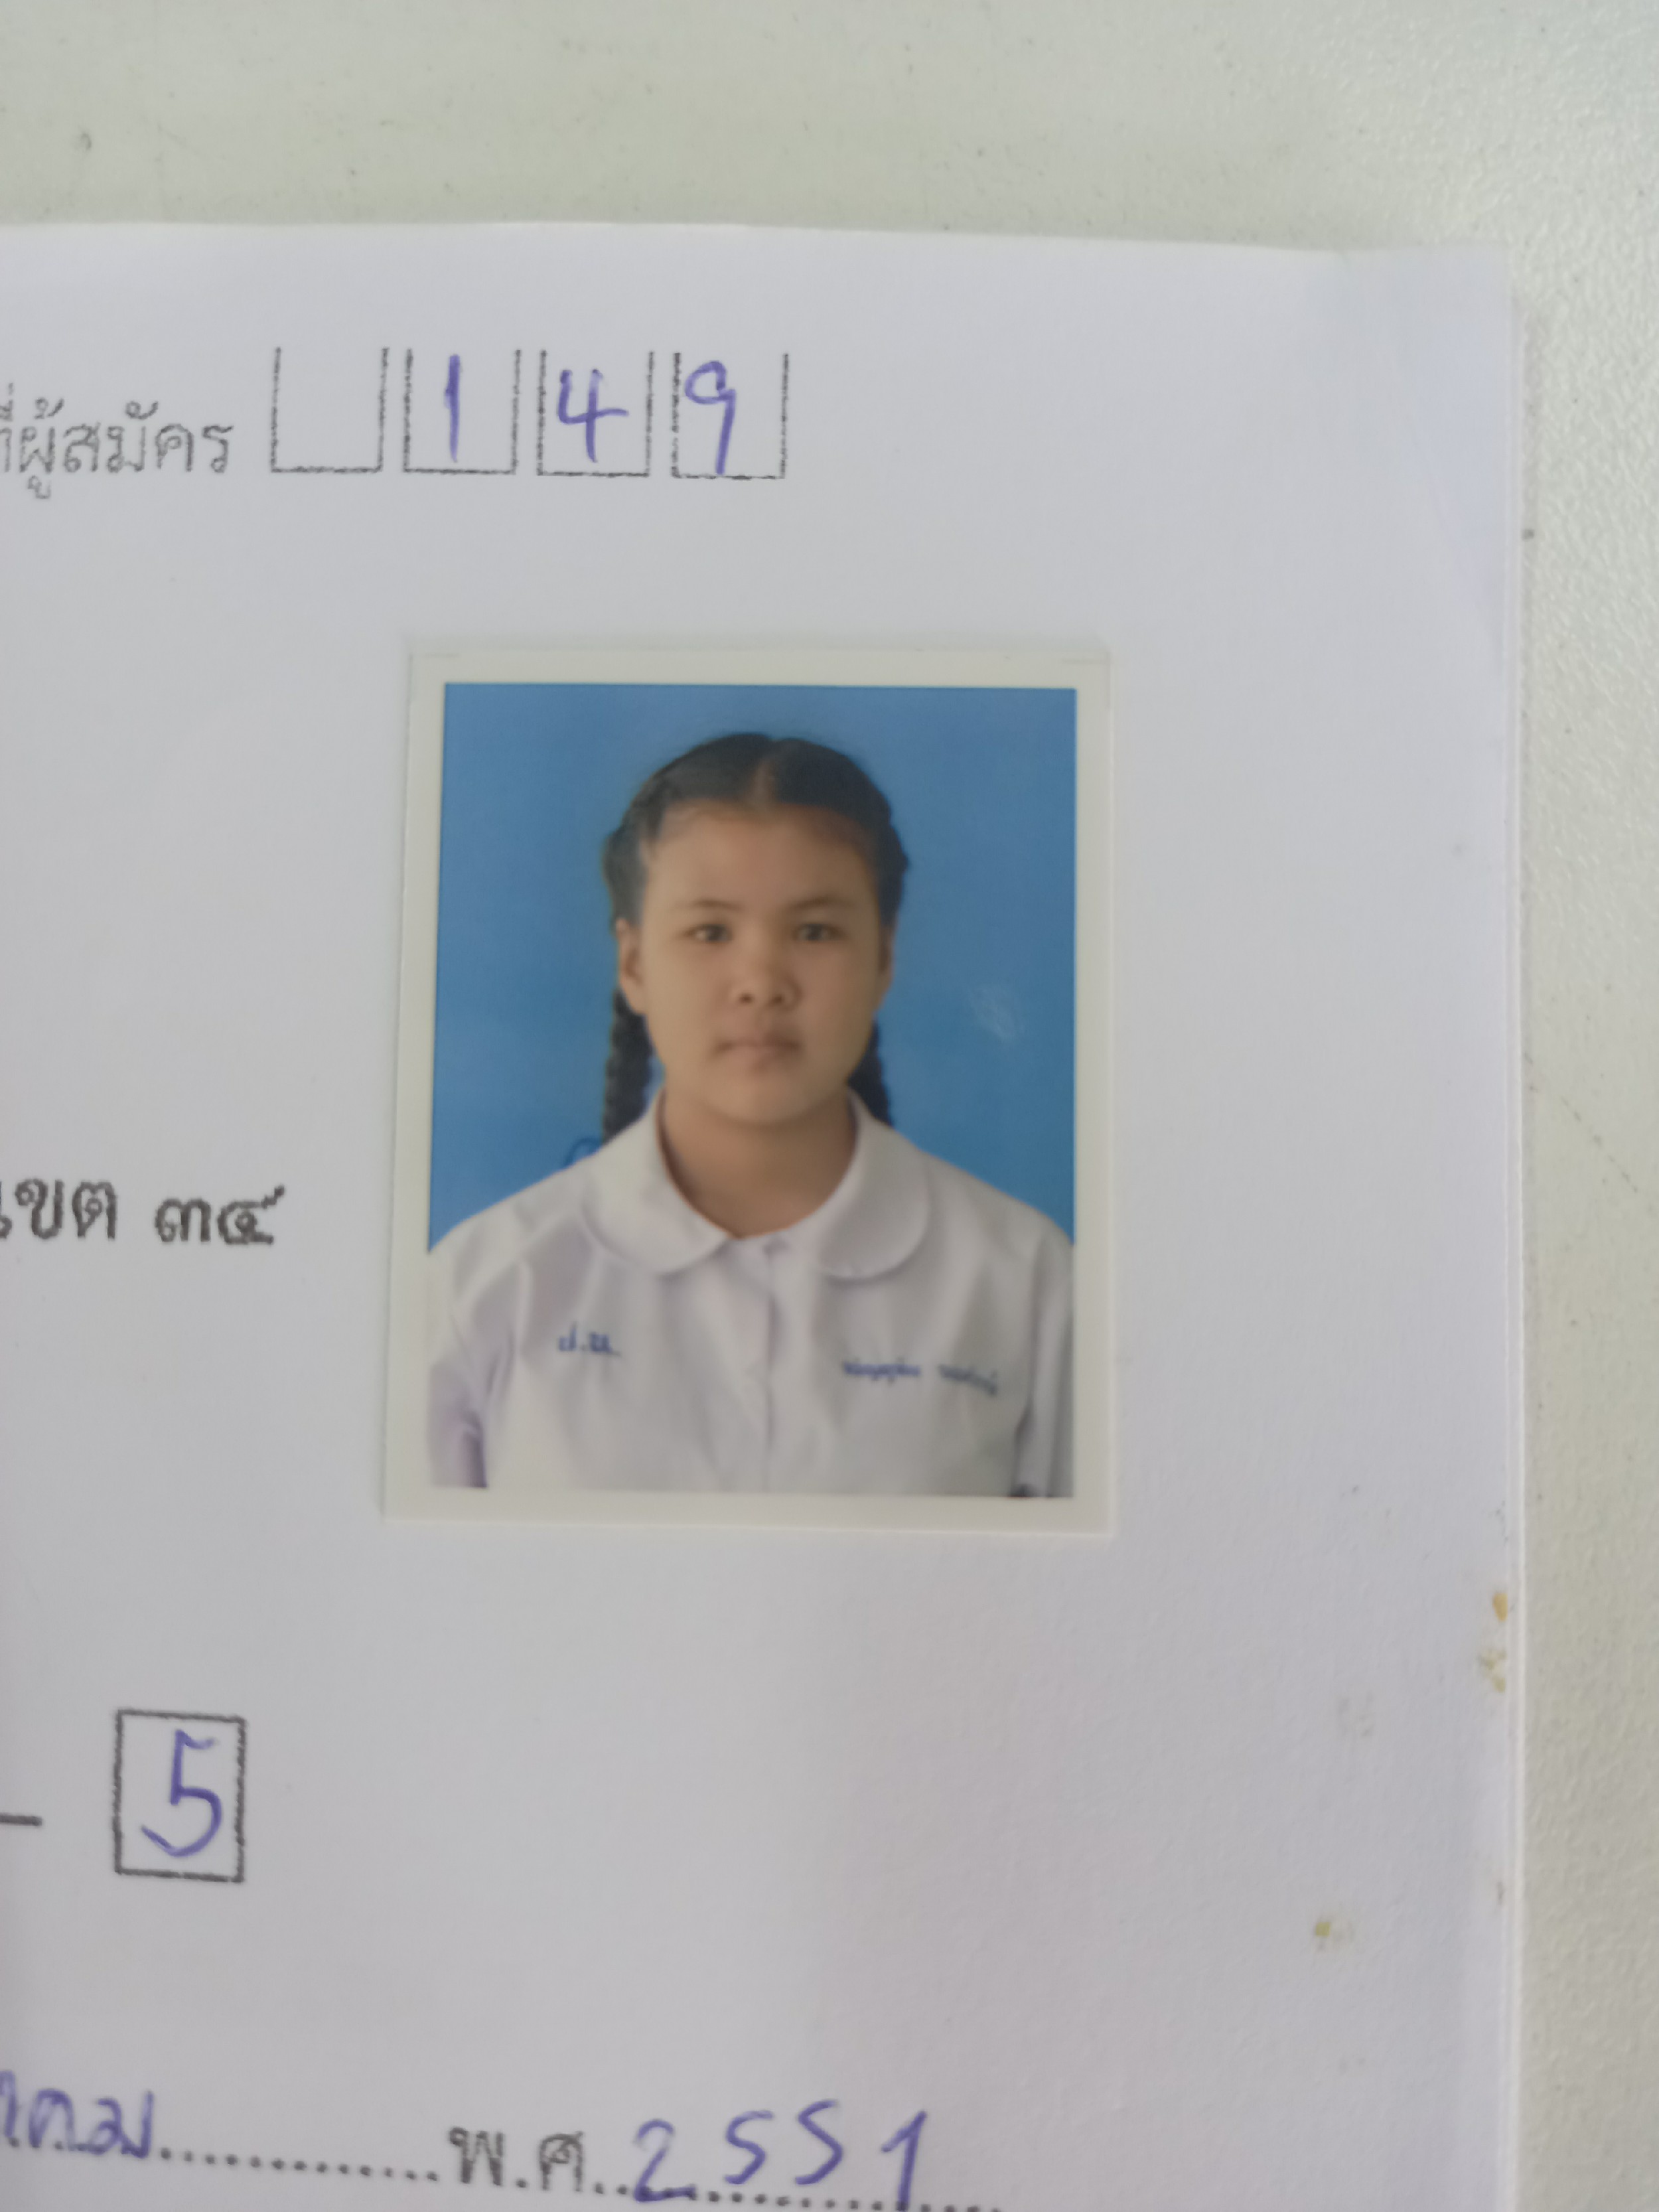 ที่ผู้สมัคร 1 4 9
เขต ๓๔
ป.น.
– 5
าคม พ.ศ. 2551